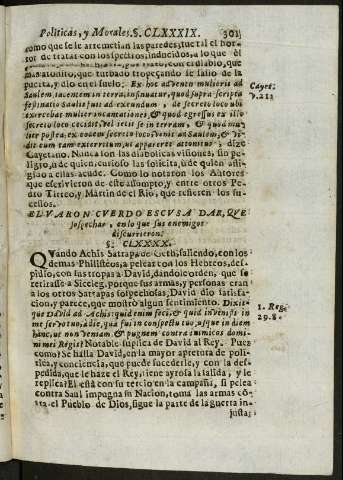 Politicas, y Morales. §. CLXXXIX. 301
como que se le arremetian las paredes, fue tal el hor-
tor de tratar con los spectros, inducidos, a lo que el
mas atonito, que turbado tropeçando se salio de la
puerta, y dio en el suelo; Ex hoc advenru mulieris ad
Saulem iacentem in terra, insinuatur, quod supra scripta
festinatio Saulis fuit ad exeundum, de secreto loco ubi
exercebat mulier incantationes, & quod egressus ex illo
secreto loco cecidit, vel iecit se in terram, & quod mu-
lier postea, ex eodem secreto loco venit ad Saulem, & vi-
dit eum tam exterritum, ut appareret attonitus; dize
Cayet.
v. 211
Cayetano. Nunca son las diabolicas visiones, sin pe-
ligro, de quien, curioso las solicita, ù de quien afli-
gido a ellas acude. Como lo notaron los Autores
que escrivieron de este assumpto, y entre otros Pe-
dro Tirreo, y Martin de el Rio, que refieren los su-
cessos.
EL VARON CUERDO ESCUSA DAR, QUE
sospechar, en lo que sus enemigos
discurrieron.
§. CLXXXX.
QUando Achis Satrapa de Geth, saliendo, con los
demas Philisteos, a pelear con los Hebreos, des-
pidio, con sus tropas a David, dandole orden, que se
retirasse a Siceleg, porque sus armas, y personas eran
a los otros Satrapas sospechosas, David dio satisfa-
cion, y parece, que mostrò algun sentimiento. Dixit-
que David ad Achis: quid enim feci, & quid invenisti in
1. Reg.
29. 8.
me servo tuo, à die, qua fui in conspectu tuo, usque in diem
hanc, ut non veniam & pugnem contra inimicos domi-
ni mei Regis? Notable suplica de David al Rey. Pues
como? Se halla David, en la mayor apretura de poli-
tica, y conciencia, que puede sucederle, y con la des-
pedida, que le haze el Rey, tiene ayrosa la salida, y le
replica? El està con su tercio en la campaña, si pelea
contra Saul impugna su Nacion, toma las armas cõ-
tra el Pueblo de Dios, sigue la parte de la guerra in-
justa;